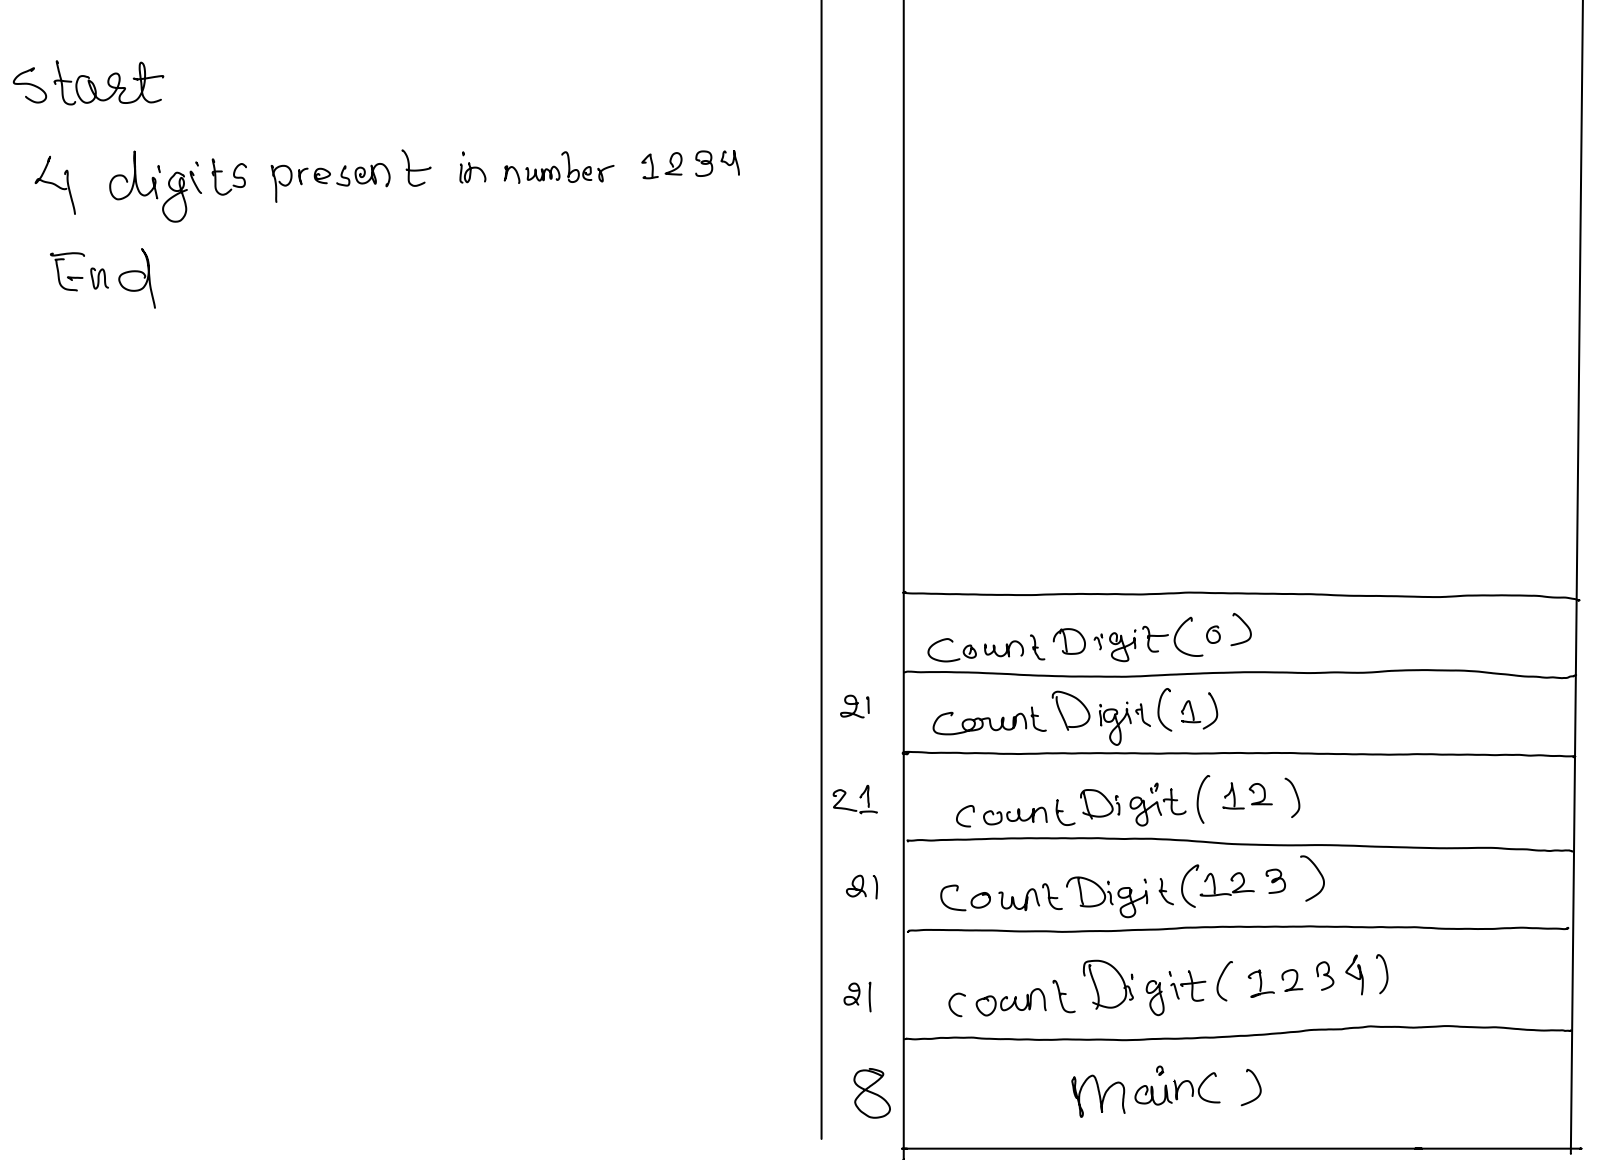 Start
4 digits present in number 1234
End
countDigit(0)
21 countDigit(1)
21 countDigit(12)
21 countDigit(123)
21 countDigit(1234)
8 Main()